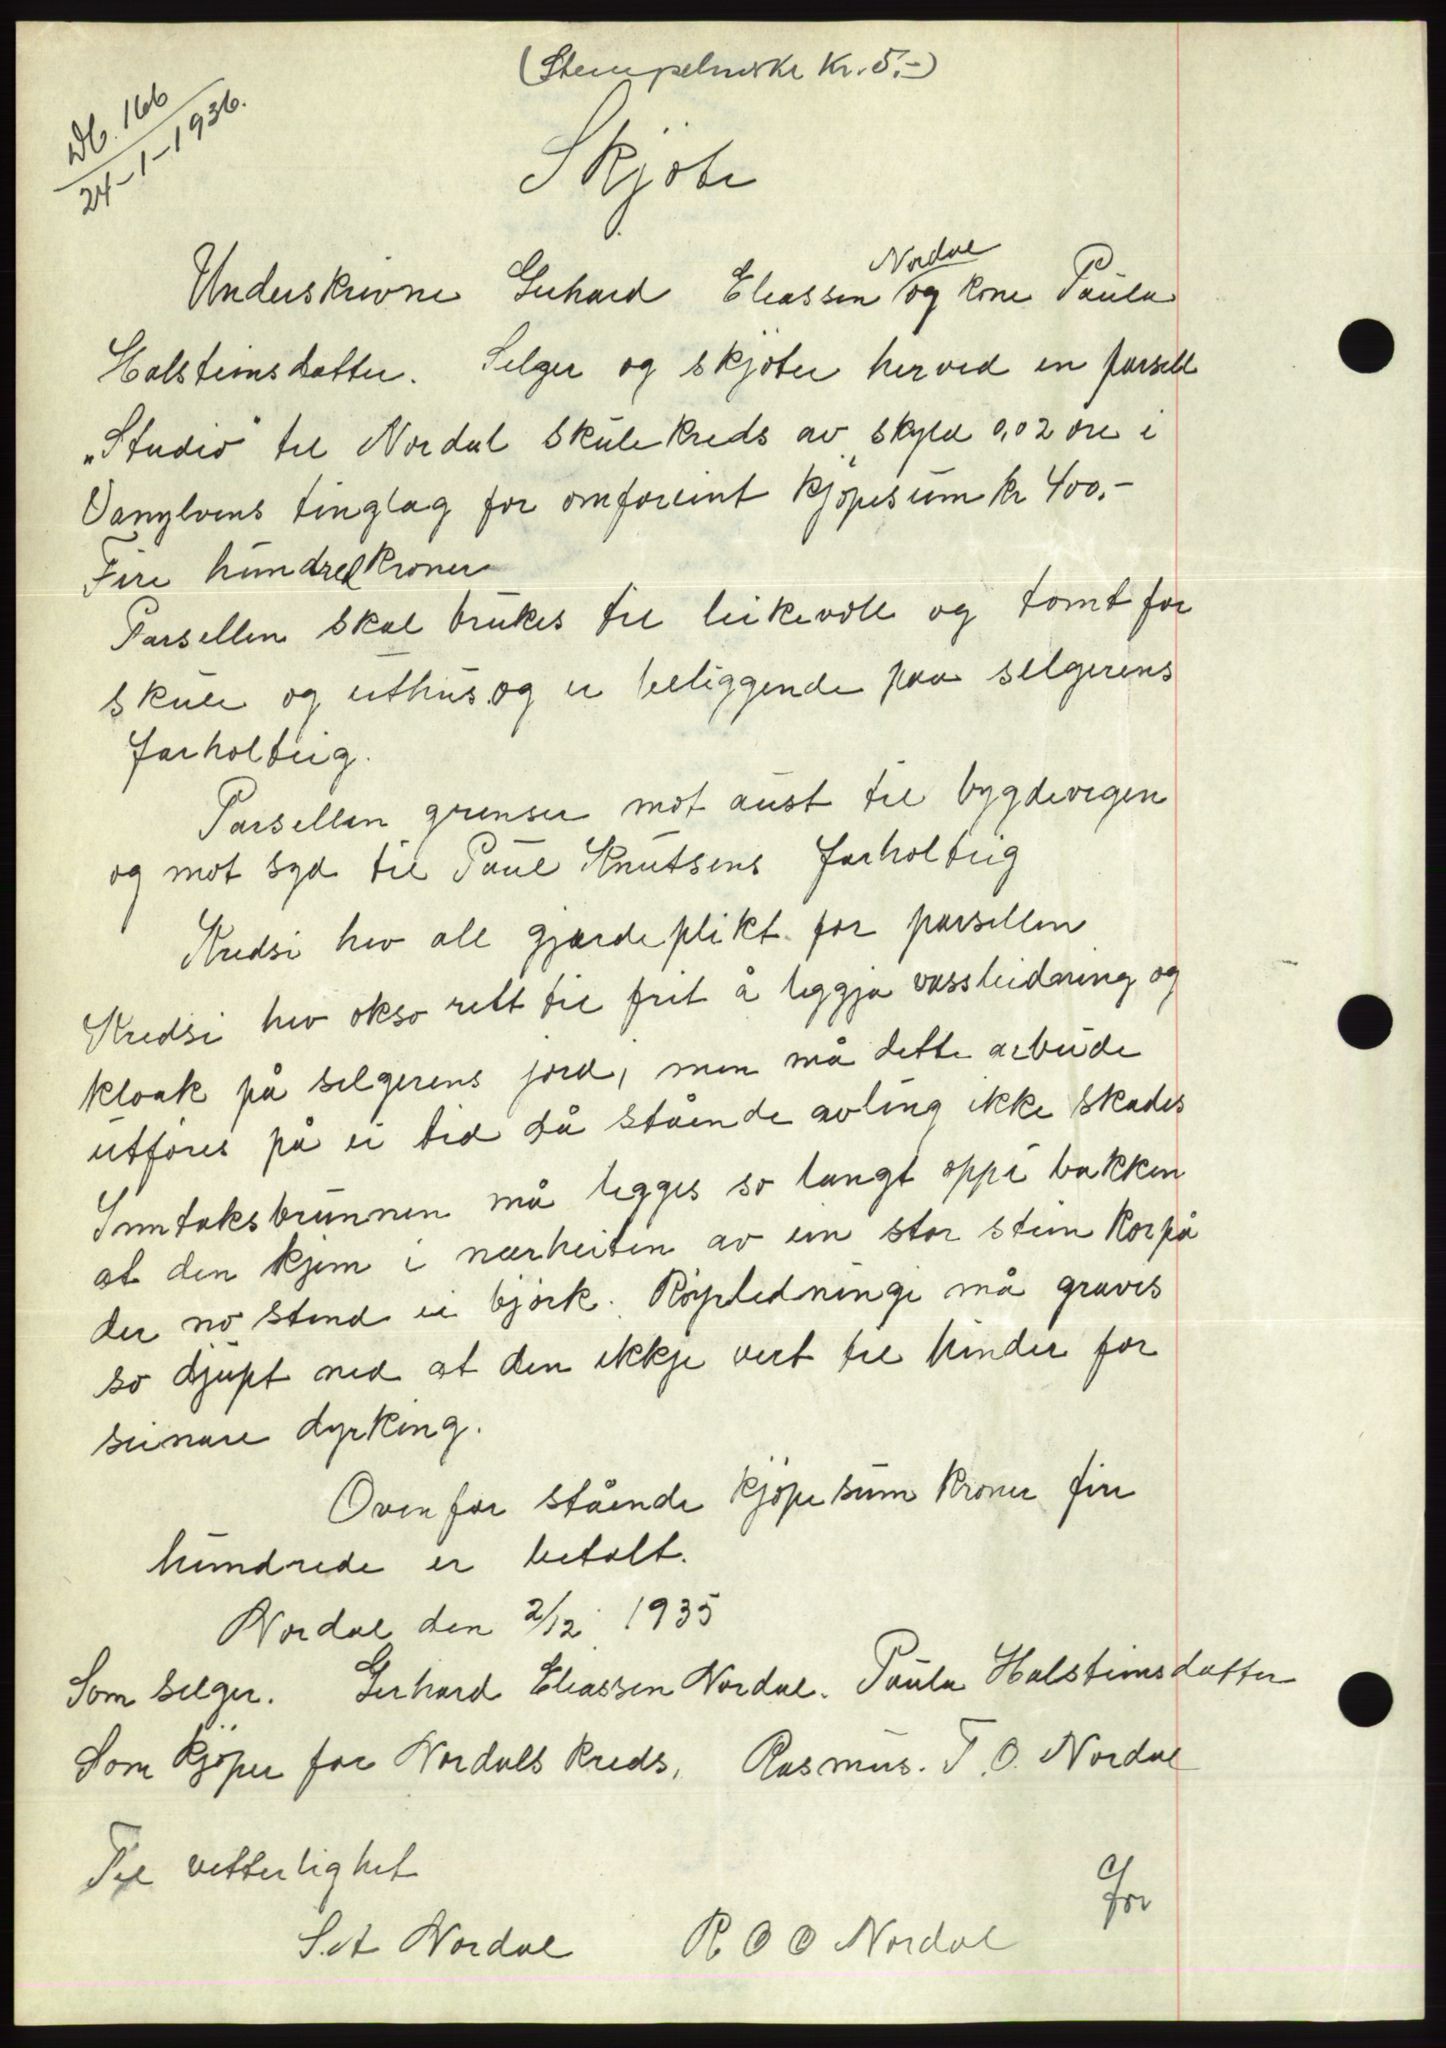 (Stempelmerke Kr. 5.-)
Db. 166
24-1-1936.
Skjöte
Nordal
Underskrivne Gerhard Eliassen og kone Paula
Halsteinsdatter. Selger og skjöter herved en parsell
„Studio" til Nordal skule kreds av skyld 0,02 öre i
Vanylvens tinglag for omforeint kjöpesum kr 400.-
Fire hundred kroner
Parsellen skal brukes til leikevoll og tomt for
skule og uthus og er beliggende paa selgerens
farholteig.
Parsellen grenser mot aust til bygdevegen
og mot syd til Paul Knutsens farholteig
Kredsi hev all gjærdeplikt for parsellen
Kredsi hev okso rett til frit å leggja vassleidning og
kloak på selgerens jord, men må dette arbeide
utföres på ei tid då stående avling ikke skades
Inntaksbrunnen må legges so langt oppi bakken
at den kjem i nærheiten av ein stor stein korpå
der no stend ei björk. Röyrledningi må graves
so djupt ned at den ikkje vert til hinder for
seinare dyrking.
Ovenfor stående kjöpesum kroner fire
hundrede er betalt.
Nordal den 2/12 1935
Som selger. Gerhard Eliassen Nordal. Paula Halsteinsdatter
Som kjöper for Nordals kreds, Rasmus. T. O. Nordal
Til vitterlighet
S. A Nordal R O O Nordal
for